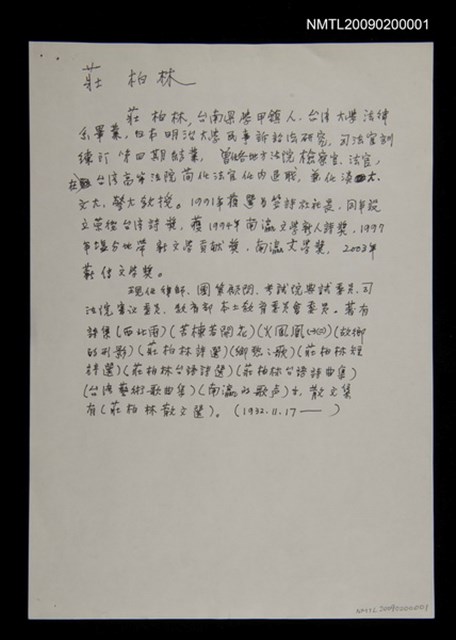 NMTL20090200001
莊 柏林
莊柏林，台南縣學甲鎮人，台湾大學法律
系畢業，日本明治大學民事訴訟法研究，司法官訓
練所第四期結業，曾任各地方法院檢察官、法官，
台湾高等法院 法官任內退職，兼任淡大、
文大、警大教授。1991年獲選為笠詩社社長，同年設
立榮後台湾詩獎，獲1994年南瀛文學新人詩獎，1997
年塩分地帶新文學貢獻獎，南瀛文學獎，2003年
文學獎。
現任律師、國策顧問、考試院典試委員、司
法院審議委員、教育部本土教育委員會委員。著有
詩集(西北雨)(苦楝若開花)(火鳳凰)(故鄉
的形影)(莊柏林詩選)(鄉愁之歌)(莊柏林短
詩選)(莊柏林台語詩選)(莊柏林台語詩曲集)
(台湾藝術歌曲集)(南瀛的歌声)等，散文集
有(莊柏林散文選)。(1932.11.17— )
NMTL20090200001